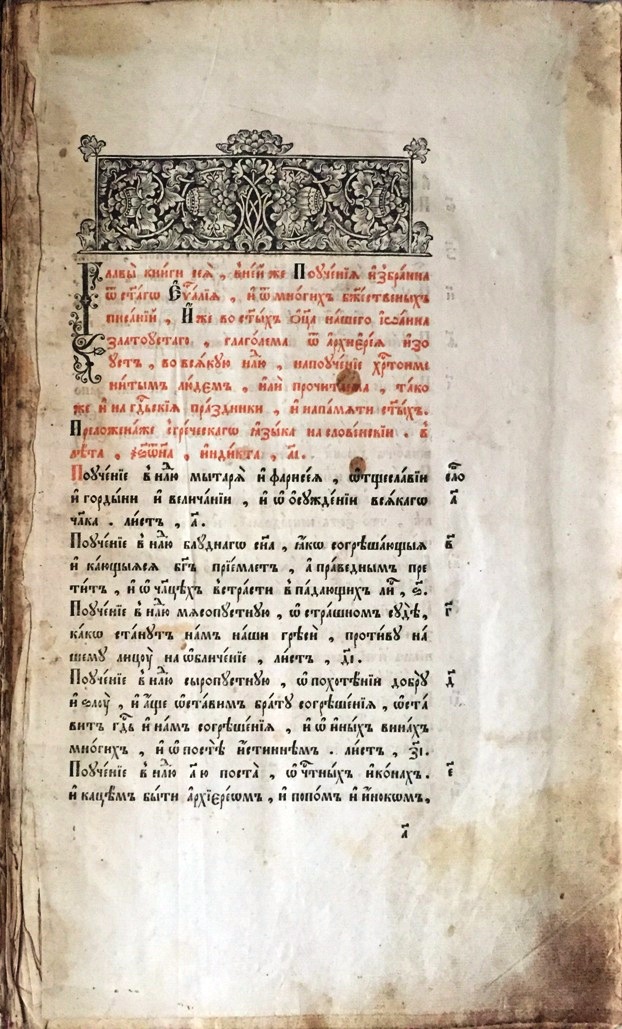 Главы̀ кни́ги сеѧ̀ , в̾не́й же Пꙋче́нїѧ и҆збра̑нна
ѿ ст҃а́гѡ Є҆ѵⷢ҇а́лїѧ , и҆ ѿ мно́гихъ бж҃е́ственыхъ
писа́нїй , И҆́же во ст҃ы́хъ ѻ҆ц҃а̀ на́шегѡ і҆ѡа́нна
златоу́стагѡ , глаго́лема ѿ а҆рхїере́ѧ и҆зо
ꙋ҆́стъ , во всѧ́кꙋю нⷣлю , на поꙋче́нїе хрⷭ҇тоиме
ни́тымъ лю́демъ , и҆лѝ прочита́ема , та́ко
же и҆ на гдⷭ҇кїѧ пра́здники , и҆ на па́мѧти ст҃ы́хъ.
Преложена́же є҆гре́ческагѡ ѧ҆зы́ка на слове́нскїи . в̾
лѣ́та , ҂ѕ҃ѡ҃н҃а , и҆нди́кта , а҃і.
Поꙋче́нїе в̾ нⷣлю мытарѧ̀ и҆ фарисе́ѧ , ѡ҆ тщесла́вїи
и҆ горды́ни и҆ велича́нїи , и҆ ѡ҆ ѡ҆сꙋжде́нїи всѧ́кагѡ а҃
чл҃ка . ли́стъ , а҃.
Поꙋче́нїе в̾ нⷣлю блꙋ́днагѡ сн҃а , ꙗ҆́кѡ согрѣша́ющыѧ в҃
и҆ ка́ющыѧсѧ бг҃ъ прїе́млетъ , а҆ пра́веднымъ пре
ти́тъ , и҆ ѡ҆ ча́щехъ в̾стра́сти в̾па́дающихъ лиⷭ҇ , ѕ҃.
Поꙋче́нїе в̾ нⷣлю мѧсопꙋ́стнꙋю , ѡ҆ стра́шномъ сꙋдѣ̀ , г҃
ка́кѡ ста́нꙋтъ на́мъ на́ши грѣсѝ , проти́вꙋ на́
шемꙋ лицꙋ̀ на ѡ҆бличе́нїе , ли́стъ , д҃і.
Поꙋче́нїе в̾ нⷣлю сыропꙋ́стнꙋю , ѡ҆ похотѣ́нїи добрꙋ̀ д҃
и҆ ѕлꙋ̀ , и҆ а҆́ще ѡ҆ста́вимъ бра́тꙋ согрѣше́нїѧ , ѡ҆ста́
витъ гдⷭ҇ь и҆ на́мъ согрѣше́нїѧ , и҆ ѡ҆ и҆́ныхъ вина́хъ
мно́гихъ , и҆ ѡ҆ постѣ̀ и҆́стиннѣмъ . ли́стъ , з҃і.
Поꙋче́нїе в̾ нⷣлю а҃ю поста̀ , ѡ҆ чⷭ҇тны́хъ и҆ко́нахъ . є҃
и҆ кацѣ̑мъ бы́ти а҆рхїере́ѡмъ , и҆ попо́мъ и҆ и҆́нокѡмъ ,
а҃